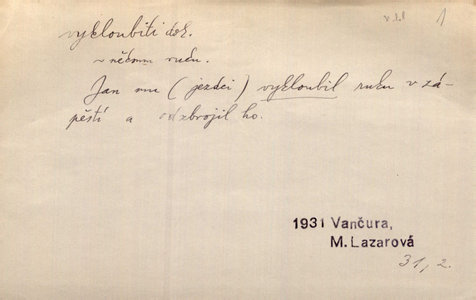 1
vykloubiti dok.
~ někomu ruku.
Jan mu (jezdci) vykloubil ruku v zá-
pěstí a odzbrojil ho.
1931 Vančura,
M. Lazarová
31, 2.